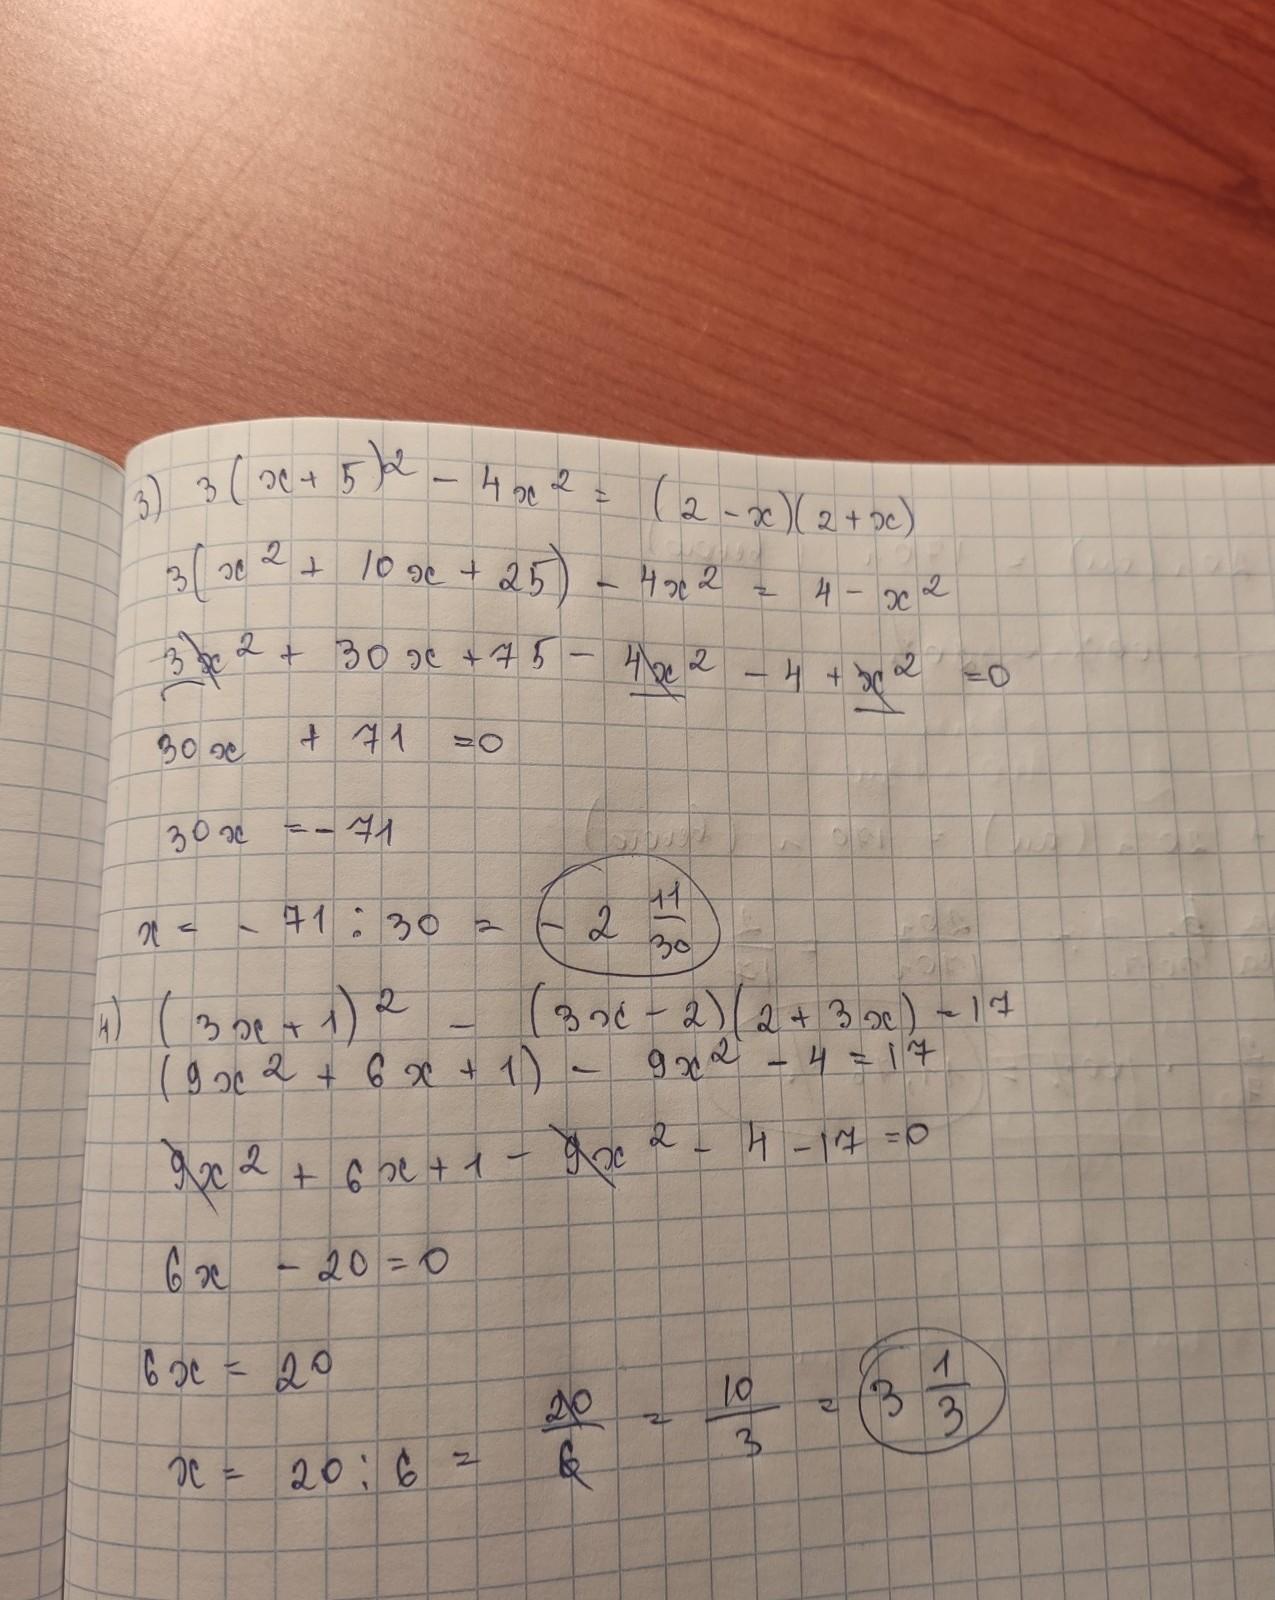 3) 3(x+5)² - 4x² = (2-x)(2+x)
3(x² + 10x + 25) - 4x² = 4 - x²
3x² + 30x + 75 - 4x² - 4 + x² = 0
30x + 71 = 0
30x = -71
x = - 71 : 30 = - 2 11/30
4) (3x+1)² - (3x-2)(2+3x) = 17
(9x² + 6x + 1) - 9x² - 4 = 17
9x² + 6x + 1 - 9x² - 4 - 17 = 0
6x - 20 = 0
6x = 20
x = 20 : 6 = 20/6 = 10/3 = 3 1/3